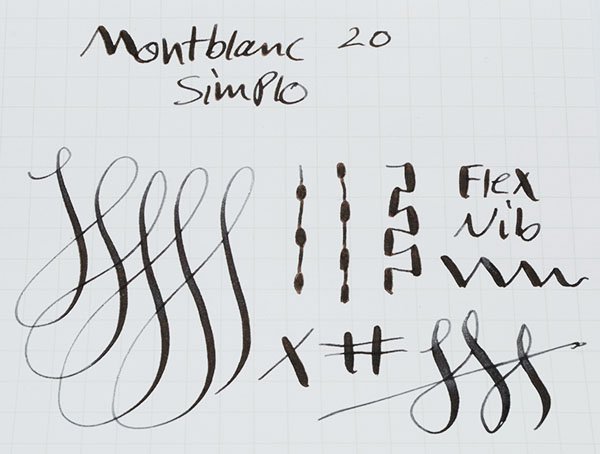 Montblanc 20
Simplo
Flex
Nib
X #